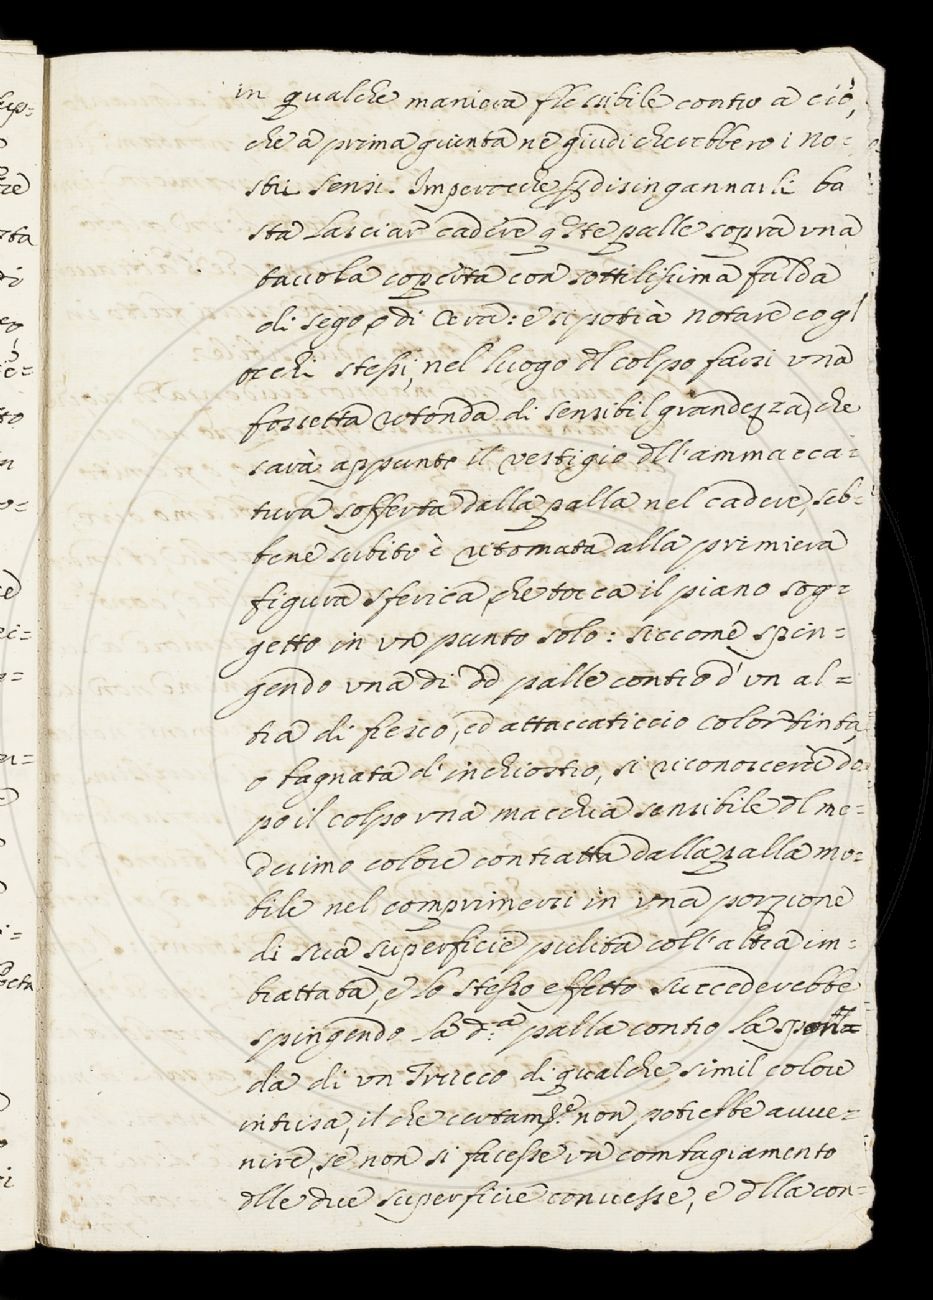 in qualche maniera flessibile contro a ciò,
che a prima giunta ne giudicherebbero i no=
stri sensi. Imperocche p disingannarli ba
sta lasciar cadere qste palle sopra vna
tavola coperta con sottilissima falda
di sego, o di Cera: e si potrà notare cogl
occhi stessi, nel luogo dl colpo farsi vna
fossetta rotonda di sensibil grandezza, che
sarà appunto il vestigio dll'ammacca=
tura sofferta dalla palla nel cadere, seb=
bene subito è ritornata alla primiera
figura sferica, che tocca il piano sog=
getto in vn punto solo: siccome spin=
gendo vna di dd palle contro d'vn al=
tra di fresco, ed attaccaticcio color tinta,
o bagnata d'inchiostro, si riconoscerà do
po il colpo vna macchia sensibile dl me=
desimo colore contratta dalla palla mo=
bile nel comprimersi in vna porzione
di sua superficie pulita coll'altra im=
brattata, e lo stesso effetto succederebbe
spingendo la d.a palla contro la spon=
da di vn Trucco di qualche simil colore
intrisa, il che certam.e non potrebbe avve=
nire, se non si facesse vn combagiamento
dlle due superficie convesse, e dlla con=